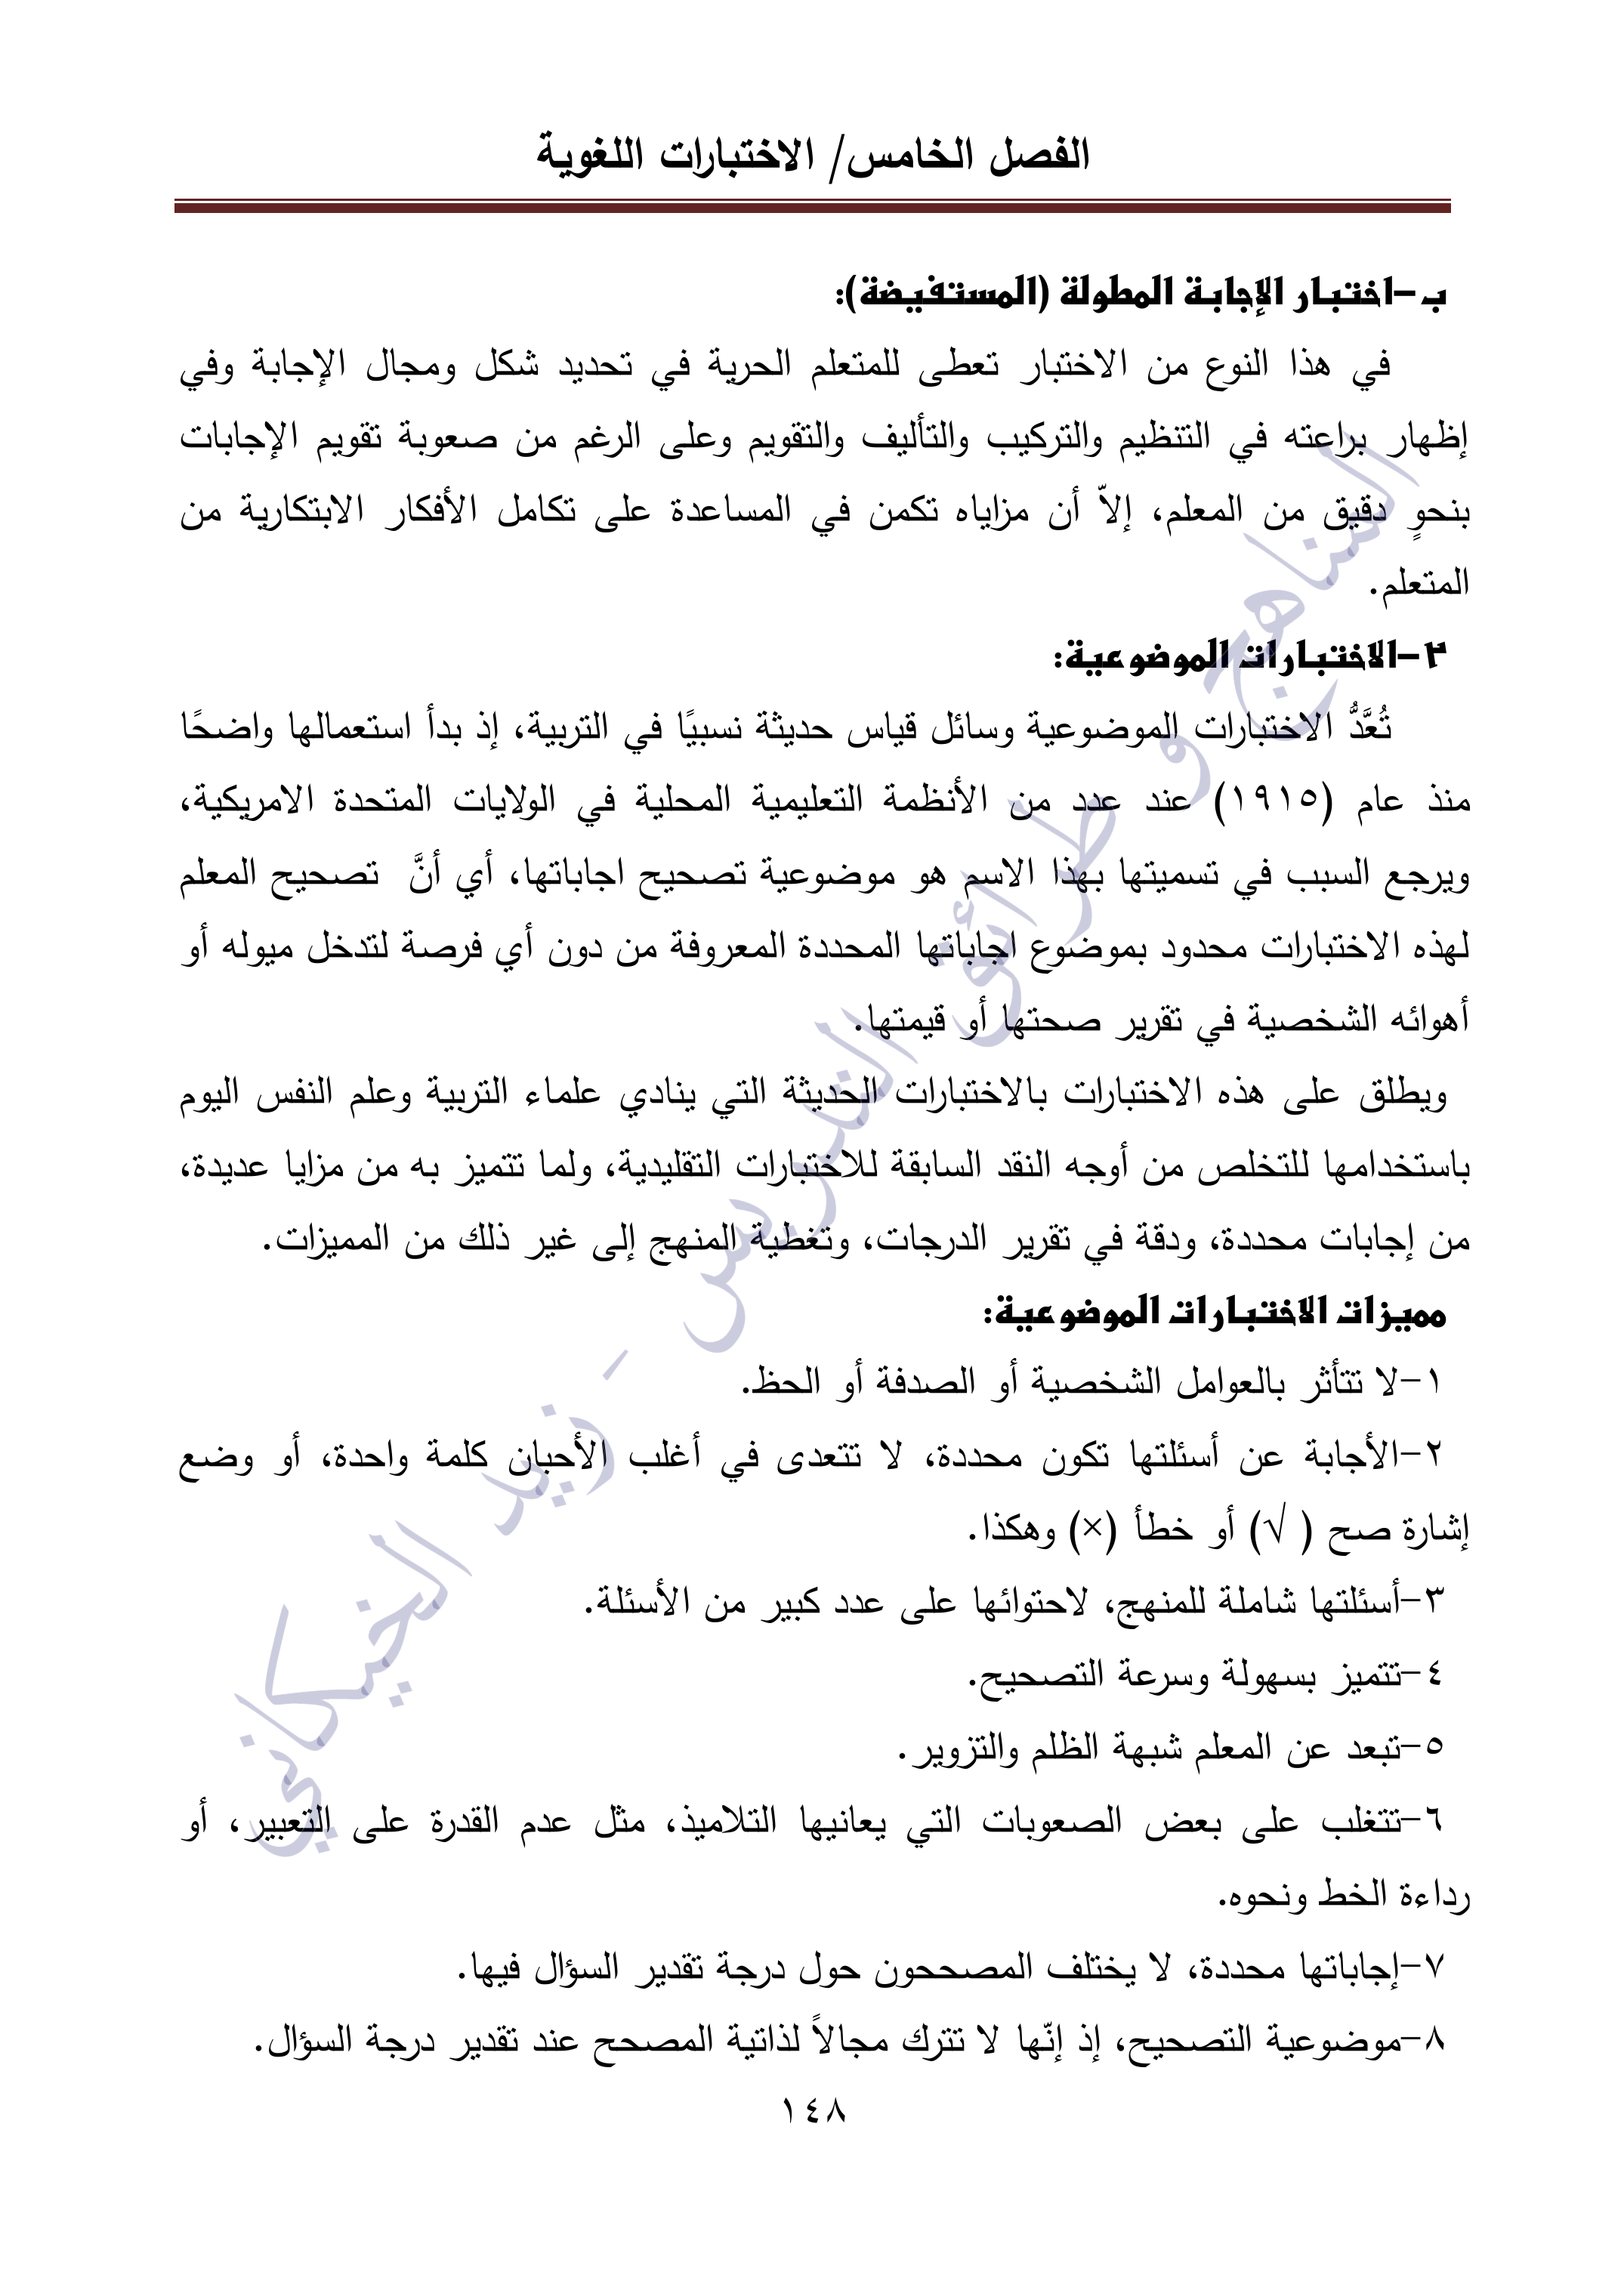 الفصل الخامس/ الاختبارات اللغوية
ب-اختبار الإجابة المطولة (المستفيضة):
في هذا النوع من الاختبار تعطى للمتعلم الحرية في تحديد شكل ومجال الإجابة وفي
إظهار براعته في التنظيم والتركيب والتأليف والتقويم وعلى الرغم من صعوبة تقويم الإجابات
بنحوٍ دقيق من المعلم، إلاّ أن مزاياه تكمن في المساعدة على تكامل الأفكار الابتكارية من
المتعلم.
٢-الاختبارات الموضوعية:
تُعَّدُّ الاختبارات الموضوعية وسائل قياس حديثة نسبيًا في التربية، إذ بدأ استعمالها واضحًا
منذ عام (١٩١٥) عند عدد من الأنظمة التعليمية المحلية في الولايات المتحدة الامريكية،
ويرجع السبب في تسميتها بهذا الاسم هو موضوعية تصحيح اجاباتها، أي أنَّ تصحيح المعلم
لهذه الاختبارات محدود بموضوع اجاباتها المحددة المعروفة من دون أي فرصة لتدخل ميوله أو
أهوائه الشخصية في تقرير صحتها أو قيمتها.
ويطلق على هذه الاختبارات بالاختبارات الحديثة التي ينادي علماء التربية وعلم النفس اليوم
باستخدامها للتخلص من أوجه النقد السابقة للاختبارات التقليدية، ولما تتميز به من مزايا عديدة،
من إجابات محددة، ودقة في تقرير الدرجات، وتغطية المنهج إلى غير ذلك من المميزات.
مميزات الاختبارات الموضوعية:
١-لا تتأثر بالعوامل الشخصية أو الصدفة أو الحظ.
٢-الأجابة عن أسئلتها تكون محددة، لا تتعدى في أغلب الأحبان كلمة واحدة، أو وضع
إشارة صح ( √) أو خطأ (×) وهكذا.
٣-أسئلتها شاملة للمنهج، لاحتوائها على عدد كبير من الأسئلة.
٤-تتميز بسهولة وسرعة التصحيح.
٥-تبعد عن المعلم شبهة الظلم والتزوير.
٦-تتغلب على بعض الصعوبات التي يعانيها التلاميذ، مثل عدم القدرة على التعبير، أو
رداءة الخط ونحوه.
٧-إجاباتها محددة، لا يختلف المصححون حول درجة تقدير السؤال فيها.
٨-موضوعية التصحيح، إذ إنّها لا تترك مجالاً لذاتية المصحح عند تقدير درجة السؤال.
١٤٨
المناهج و طرائق التدريس - زيد الخيكاني